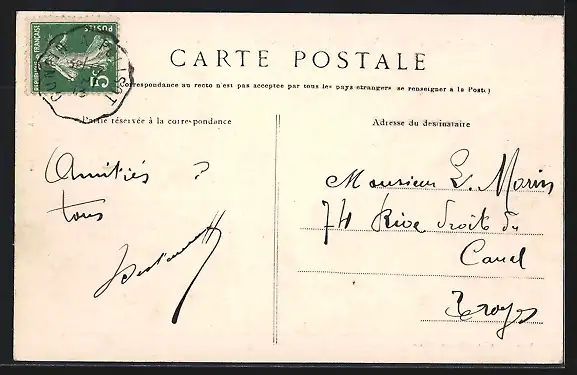 RÉPUBLIQUE FRANÇAISE
POSTES
5c
CARTE POSTALE
correspondance au recto n'est pas acceptée par tous les pays étrangers se renseigner à la Poste)
Partie réservée à la correspondance
Adresse du destinataire
Amitiés à
tous
Monsieur L. Morin
74 Rive droite du
Canal
Troyes